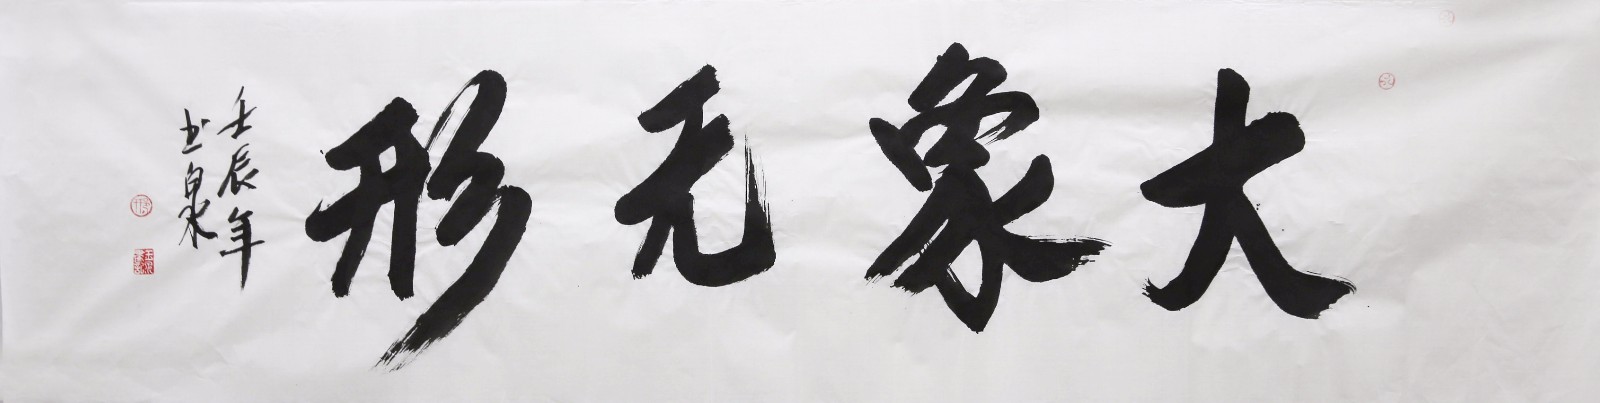 大象无形
壬辰年
玉泉